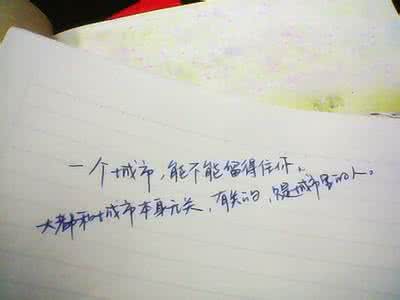 一个城市,能不能留得住你、
大都和城市本身无关,有关的,是城市里的人。